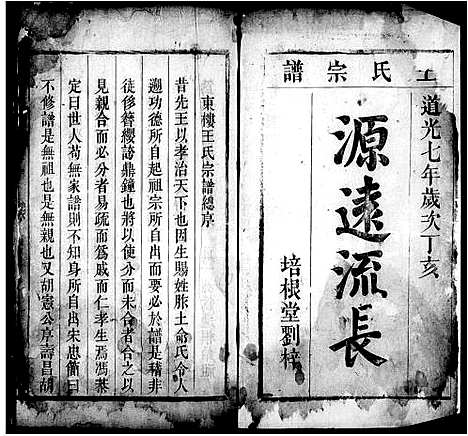 王氏宗譜
道光七年歲次丁亥
源遠流長
培根堂劉梓
東樓王氏宗譜總序
昔先王以孝治天下也因生賜姓胙土命氏令人
遡功德所自出起祖宗所自來而要必於譜是稽非
徒侈簪纓誇鼎鐘也將以使分而未合者合之以
見親合而必分者易疏而爲戚而仁孝生焉馮慕
定曰世人苟無家譜則不知身所自出朱思衛曰
不修譜是無祖也是無親也又胡憲公序壽昌胡